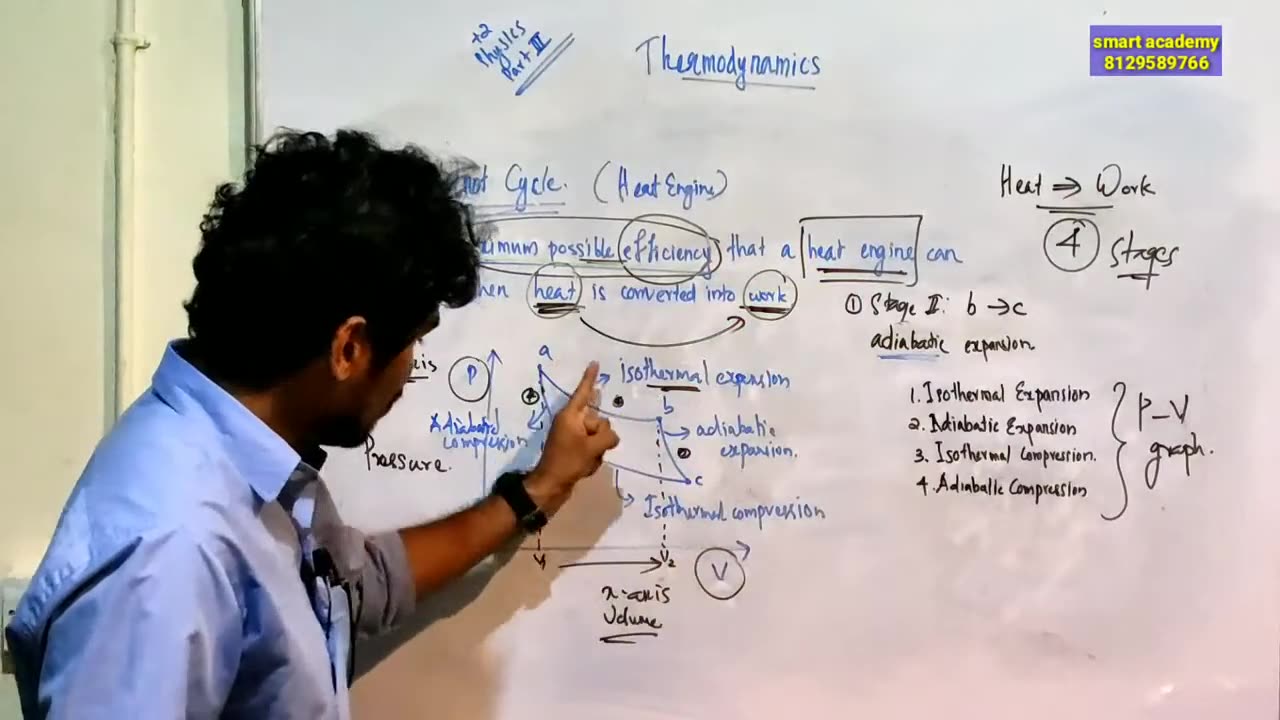 +2
Physics
Part II
Thermodynamics
smart academy
8129589766
not Cycle. (Heat Engine)
imum possible efficiency that a heat engine can
hen heat is converted into work
Heat ⇒ Work
4 Stages
① Stage II: b → c
adiabatic expansion
1. Isothermal Expansion
2. Adiabatic Expansion
3. Isothermal Compression.
4. Adiabatic Compression
P-V
graph.
is
P
a
isothermal expansion
b
Adiabatic
compression
adiabatic
expansion.
Pressure.
c
Isothermal compression
V1
V2
V
x-axis
Volume